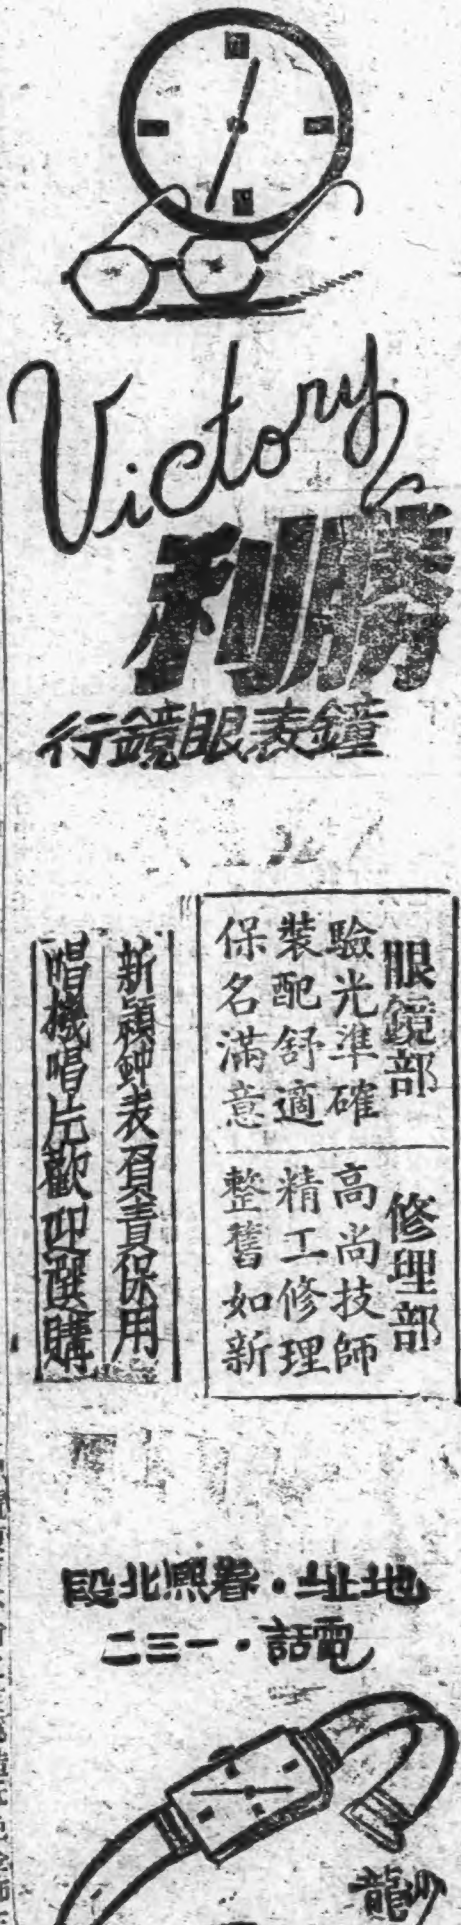 Victory
勝利
鐘表眼鏡行
眼鏡部
驗光準確
裝配舒適
保名滿意
修理部
高尚技師
精工修理
整舊如新
新穎鈡表負責保用
唱機唱片歡迎選購
地址·春熙北段
電話·一三二
沙龍